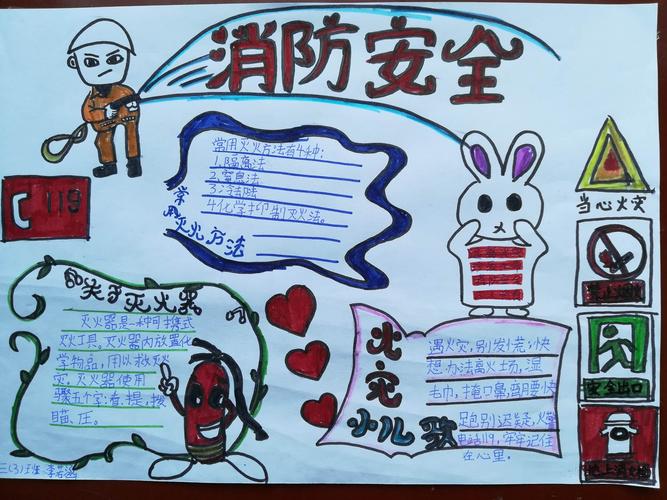 消防安全
119
常用灭火方法
常用灭火方法有4种：
1.隔离法
2.窒息法
3.冷却法
4.化学抑制灭火法。
当心火灾
禁止烟火
安全出口
地上消火栓
关于灭火器
灭火器是一种可携式
灭火工具，灭火器内放置化
学物品，用以救灭火
灾，灭火器使用
骤五个字：看、提、拨
瞄、压。
火灾
小儿歌
遇火灾，别发慌，快
想办法离火场，湿
毛巾，捂口鼻，
足包别迟疑，火警
电话119，牢牢记住
在心里。
三(3)班